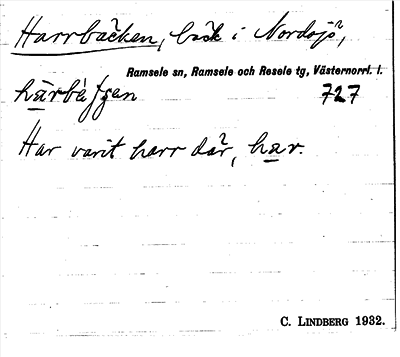 Harrbäcken, bäck i Nordsjö,
Ramsele sn, Ramsele och Resele tg, Västernorrl. l.
727
Har varit harr där, har.
C. LINDBERG 1932.